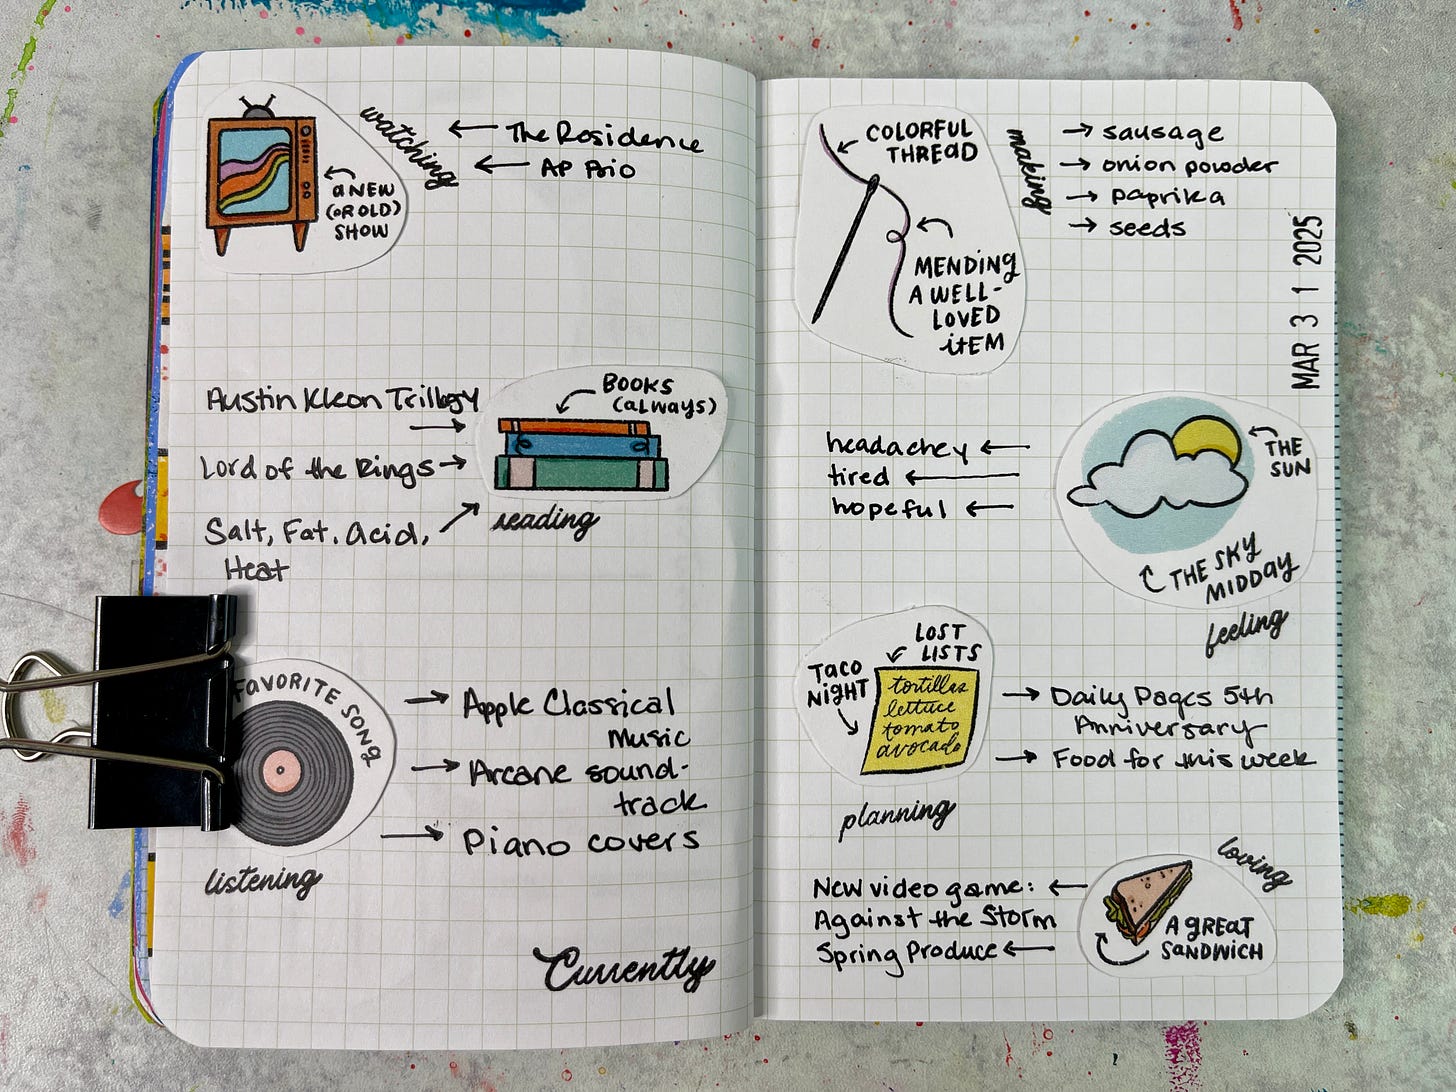 watching
The Residence
AP Bio
a NEW
(OR OLD)
SHOW
Austin Kleon Trilogy
Lord of the Rings
Salt, Fat, Acid,
Heat
BOOKS
(always)
reading
FAVORITE SONG
Apple Classical
Music
Arcane sound-
track
Piano covers
listening
Currently
COLORFUL
THREAD
MENDING
A WELL-
LOVED
itEM
making
sausage
onion powder
paprika
seeds
MAR 31 2025
headachey
tired
hopeful
THE
SUN
THE SKY
MIDDAY
feeling
LOST
LISTS
TACO
NIGHT
tortillas
lettuce
tomato
avocado
planning
Daily Pages 5th
Anniversary
Food for this week
loving
New video game:
Against the Storm
Spring Produce
A GREAT
SANDWICH